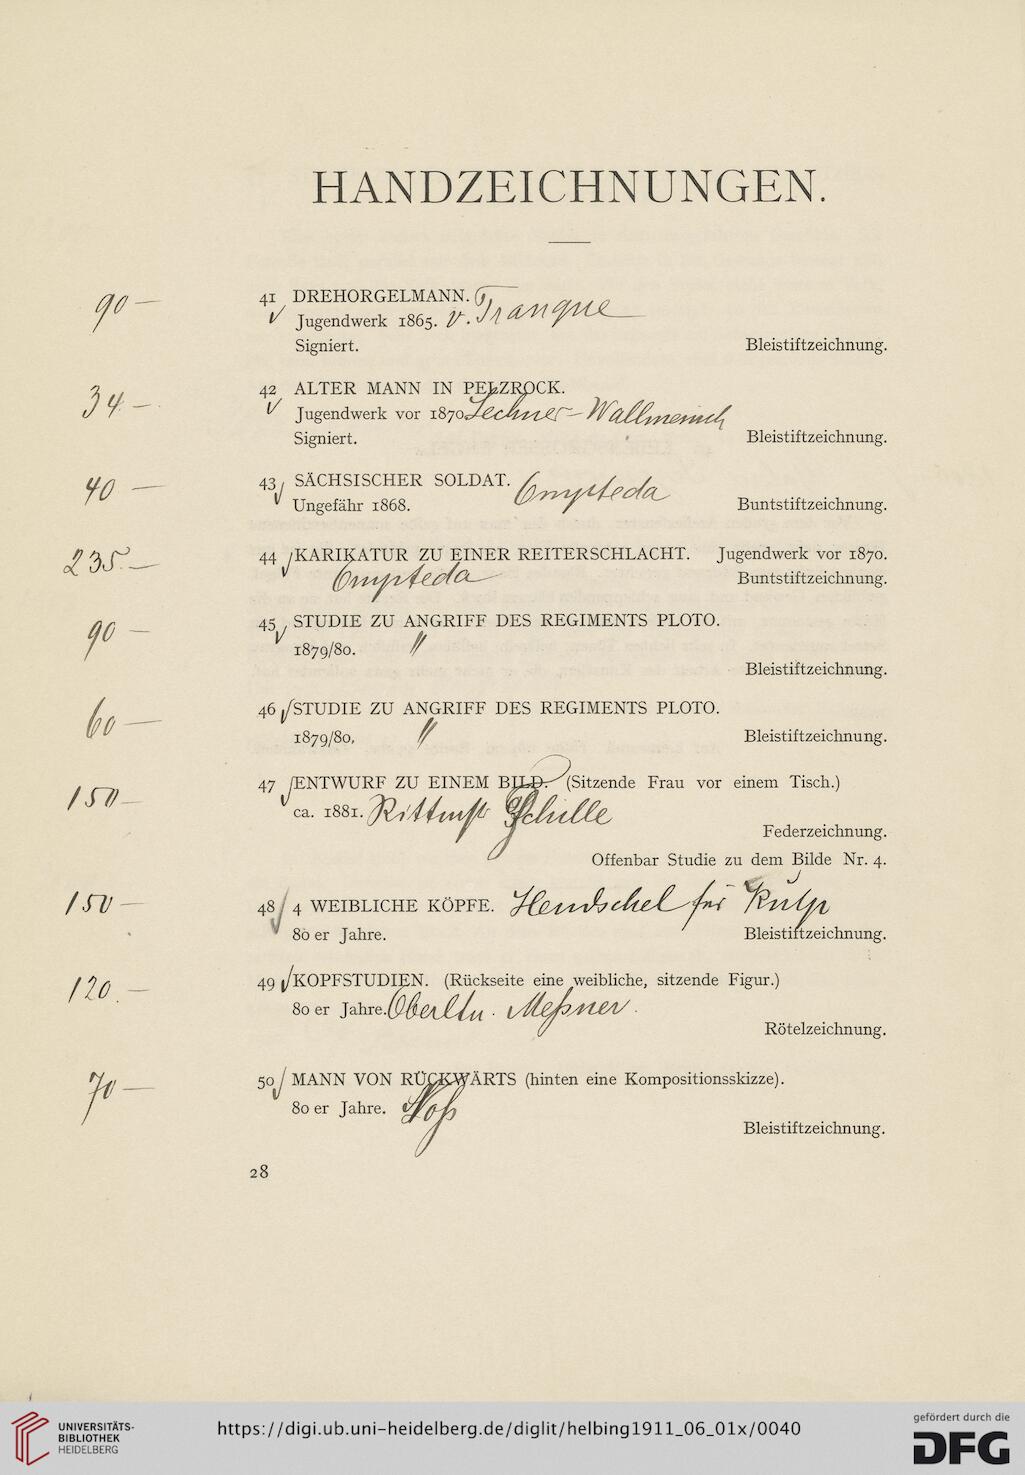 HANDZEICHNUNGEN.
90 — 41 DREHORGELMANN.
Jugendwerk 1865. v.
Signiert. Bleistiftzeichnung.
34 — 42 ALTER MANN IN PELZROCK.
Jugendwerk vor 1870. Lechner-
Signiert. Bleistiftzeichnung.
40 — 43 SÄCHSISCHER SOLDAT. Ompteda
Ungefähr 1868. Buntstiftzeichnung.
235.— 44 KARIKATUR ZU EINER REITERSCHLACHT. Jugendwerk vor 1870.
Ompteda Buntstiftzeichnung.
90 — 45 STUDIE ZU ANGRIFF DES REGIMENTS PLOTO.
1879/80. "
Bleistiftzeichnung.
60 — 46 STUDIE ZU ANGRIFF DES REGIMENTS PLOTO.
1879/80. " Bleistiftzeichnung.
150— 47 ENTWURF ZU EINEM BILD. (Sitzende Frau vor einem Tisch.)
ca. 1881. Rittmstr Schille
Federzeichnung.
Offenbar Studie zu dem Bilde Nr. 4.
150 — 48 4 WEIBLICHE KÖPFE. Hendschel für Kulp
80er Jahre. Bleistiftzeichnung.
120.— 49 KOPFSTUDIEN. (Rückseite eine weibliche, sitzende Figur.)
80er Jahre. Oberltn. Meßner.
Rötelzeichnung.
70 — 50 MANN VON RÜCKWÄRTS (hinten eine Kompositionsskizze).
80er Jahre. Noß
Bleistiftzeichnung.
28
UNIVERSITÄTS-
BIBLIOTHEK
HEIDELBERG
https://digi.ub.uni-heidelberg.de/diglit/helbing1911_06_01x/0040
gefördert durch die
DFG